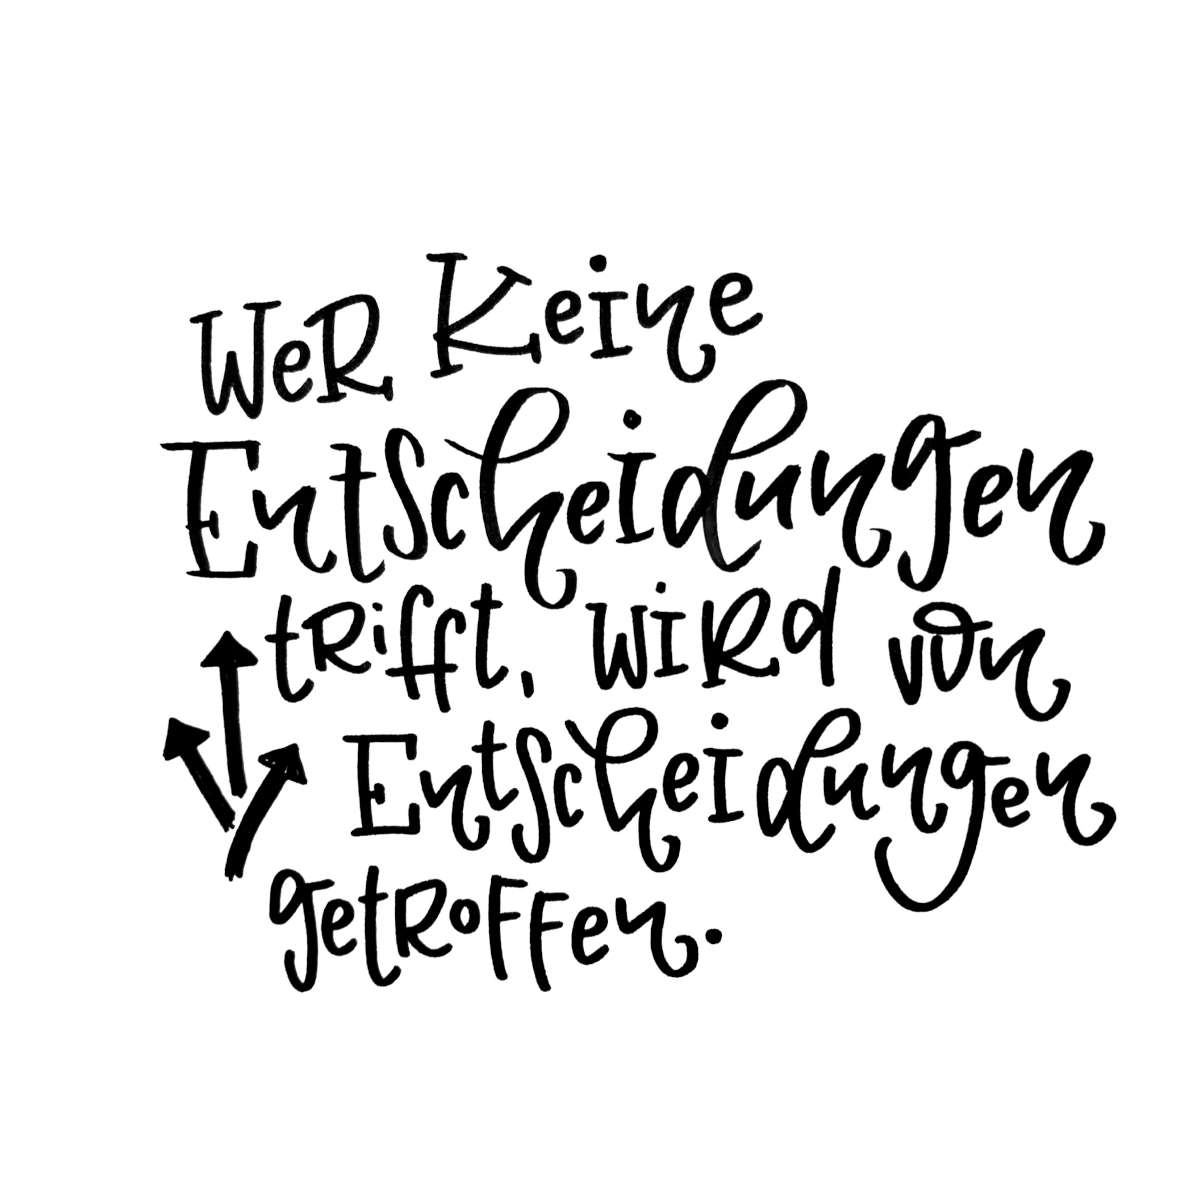 Wer keine
Entscheidungen
trifft, wird von
Entscheidungen
getroffen.